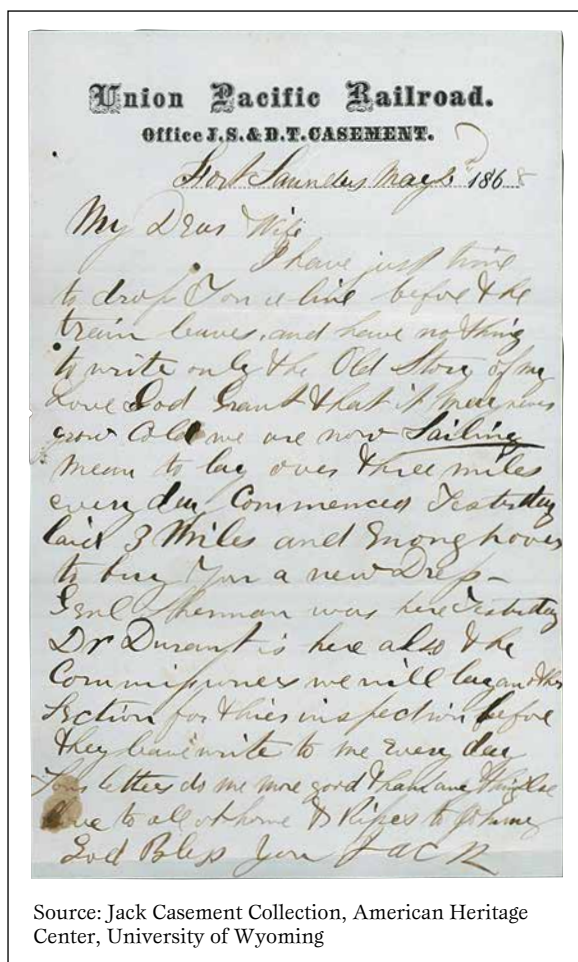 Union Pacific Railroad.
Office J. S. & D. T. CASEMENT.
Fort Saunders May 2nd 1868
My Dear Wife
I have just time
to drop You a line before the
train leaves. and have nothing
to write only the Old Story of my
Love God Grant that it may never
grow Cold we are now Sailing
mean to lay over three miles
every day Commenced Yesterday
laid 3 Miles and Enough over
to buy You a new Dress –
Genl Sherman was here Yesterday
Dr Durant is here also the
Commissioners we will lay another
Section for their inspection before
they leave write to me Every day
Your letters do me more good than any thing else
Love to all at home & Kisses to
God Bless You JACK
Source: Jack Casement Collection, American Heritage
Center, University of Wyoming